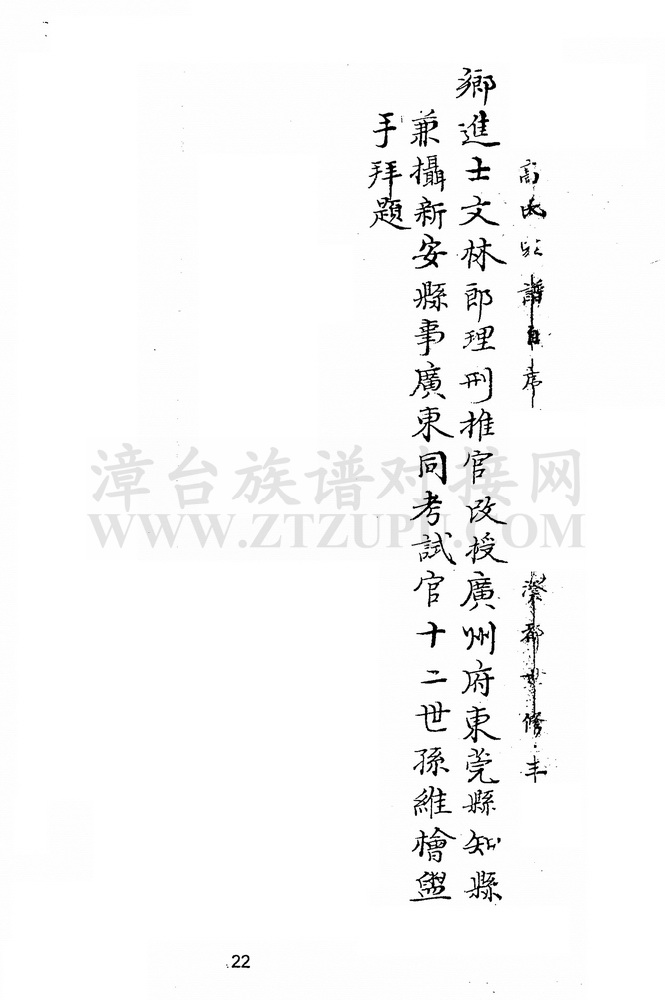 高氏 譜 序
鄉進士文林郎理刑推官改授廣州府東莞縣知縣
兼攝新安縣事廣東同考試官十二世孫維檜盥
手拜題
漳台族谱对接网
WWW.ZTZUPU.COM
22